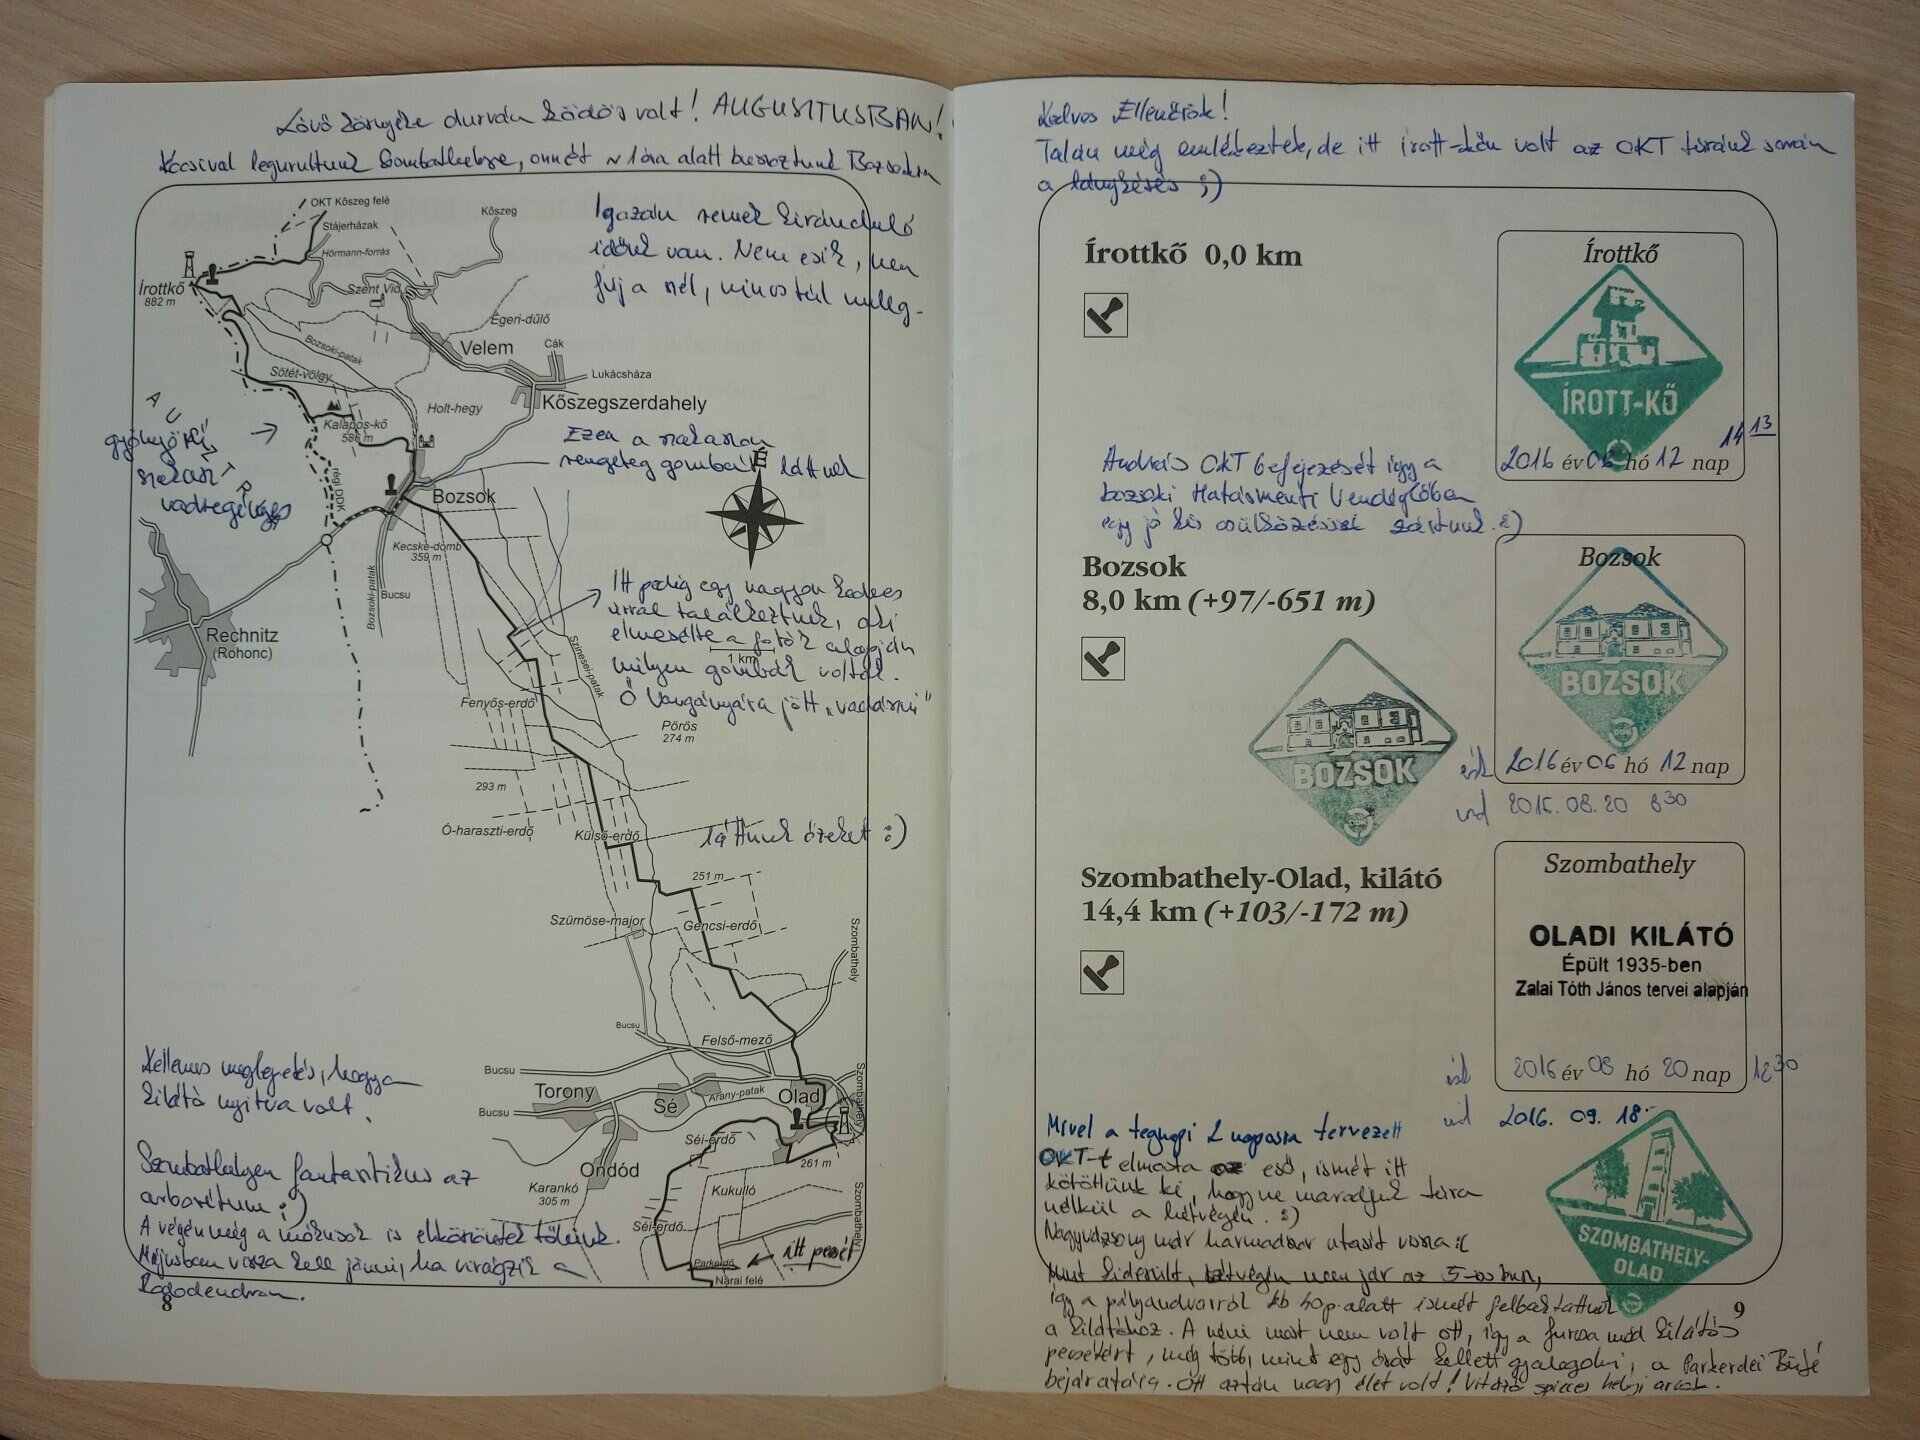 Lövő környéke durván ködös volt! AUGUSZTUSBAN!
Kocsival legurultunk Szombathelyre, onnét ~ 1 óra alatt Bozsokra
OKT Kőszeg felé
Stájerházak
Kőszeg
Hörmann-forrás
Írottkő
882 m
Szent Vid
Igazán remek kiránduló
időnk van. Nem esik, nem
fúj a szél, nincs túl meleg.
Égeri-dűlő
Velem
Cák
Bozsoki-patak
Sötét-völgy
Lukácsháza
Kőszegszerdahely
Holt-hegy
AUSZTRIA
Kalapos-kő
586 m
gyönyörű
szakasz
vadregényes
Ezen a szakaszon
rengeteg gombát láttunk
É
régi DDK
Bozsok
Kecske-domb
359 m
Bozsoki-patak
Bucsu
Rechnitz
(Rohonc)
Itt pedig egy nagyon kedves
úrral találkoztunk, aki
elmesélte a fotók alapján
milyen gombák voltak.
Ő Vargányára jött „vadászni”
1 km
Szinesei-patak
Fenyős-erdő
Pörös
274 m
293 m
Ó-haraszti-erdő
Külső-erdő
láttunk őzeket :)
251 m
Szümöse-major
Gencsi-erdő
Szombathely
Bucsu
Felső-mező
Kellemes meglepetés, hogy a
kilátó nyitva volt.
Bucsu
Torony
Sé
Arany-patak
Olad
Szombathely
Bucsu
Séi-erdő
261 m
Ondód
Karankó
305 m
Kukulló
Szombathely
Séi-erdő
Parkerdő
itt pecsét
Nárai felé
Szombathelyen fantasztikus az
arborétum :)
A végén még a mókusok is elköszöntek tőlünk.
Májusban vissza kell jönni, ha virágzik a
8
Kedves Ellenőrök!
Talán még emlékeztek, de itt Írott-kőn volt az OKT túránk során
a lánykérés ;)
Írottkő 0,0 km
Írottkő
ÍROTT-KŐ
2016 év 06 hó 12 nap
14 13
András OKT befejezését így a
bozsoki Határmenti Vendéglőben
egy jó kis csülközéssel zártunk. :)
Bozsok
8,0 km (+97/-651 m)
Bozsok
BOZSOK
BOZSOK
érk 2016 év 06 hó 12 nap
ind 2016. 08. 20 8 30
Szombathely-Olad, kilátó
14,4 km (+103/-172 m)
Szombathely
OLADI KILÁTÓ
Épült 1935-ben
Zalai Tóth János tervei alapján
érk 2016 év 08 hó 20 nap 12 30
ind 2016. 09. 18.
SZOMBATHELY-
OLAD
Mivel a tegnapi 2 naposra tervezett
OKT-t elmosta az eső, ismét itt
kötöttünk ki, hogy ne maradjunk túra
nélkül a hétvégén. :)
Nagyvázsony már harmadszor utasít vissza :(
Mint kiderült, hétvégén nem jár az 5-ös busz,
így a pályaudvarról kb 40p. alatt ismét felbaktattunk
a kilátóhoz. A néni most nem volt ott, így a furcsa mód kilátós
pecsétért, még több, mint egy órát kellett gyalogolni, a Parkerdei Büfé
bejáratáig. Ott aztán nagy élet volt! Vitázó spicces helyi arcok.
9